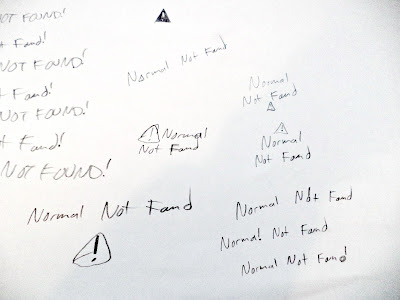 NOT FOUND!
ot Fand!
NOT FOUND!
ot Fand!
NOT FOUND!
ot Fand!
NOT FOUND!
Normal Not Fand
Normal
Not Fand
Normal
Not Fand
Normal
Not Fand
Normal Not Fand
!
Normal Not Fand
Normal! Not Fand
Normal Not Fand!